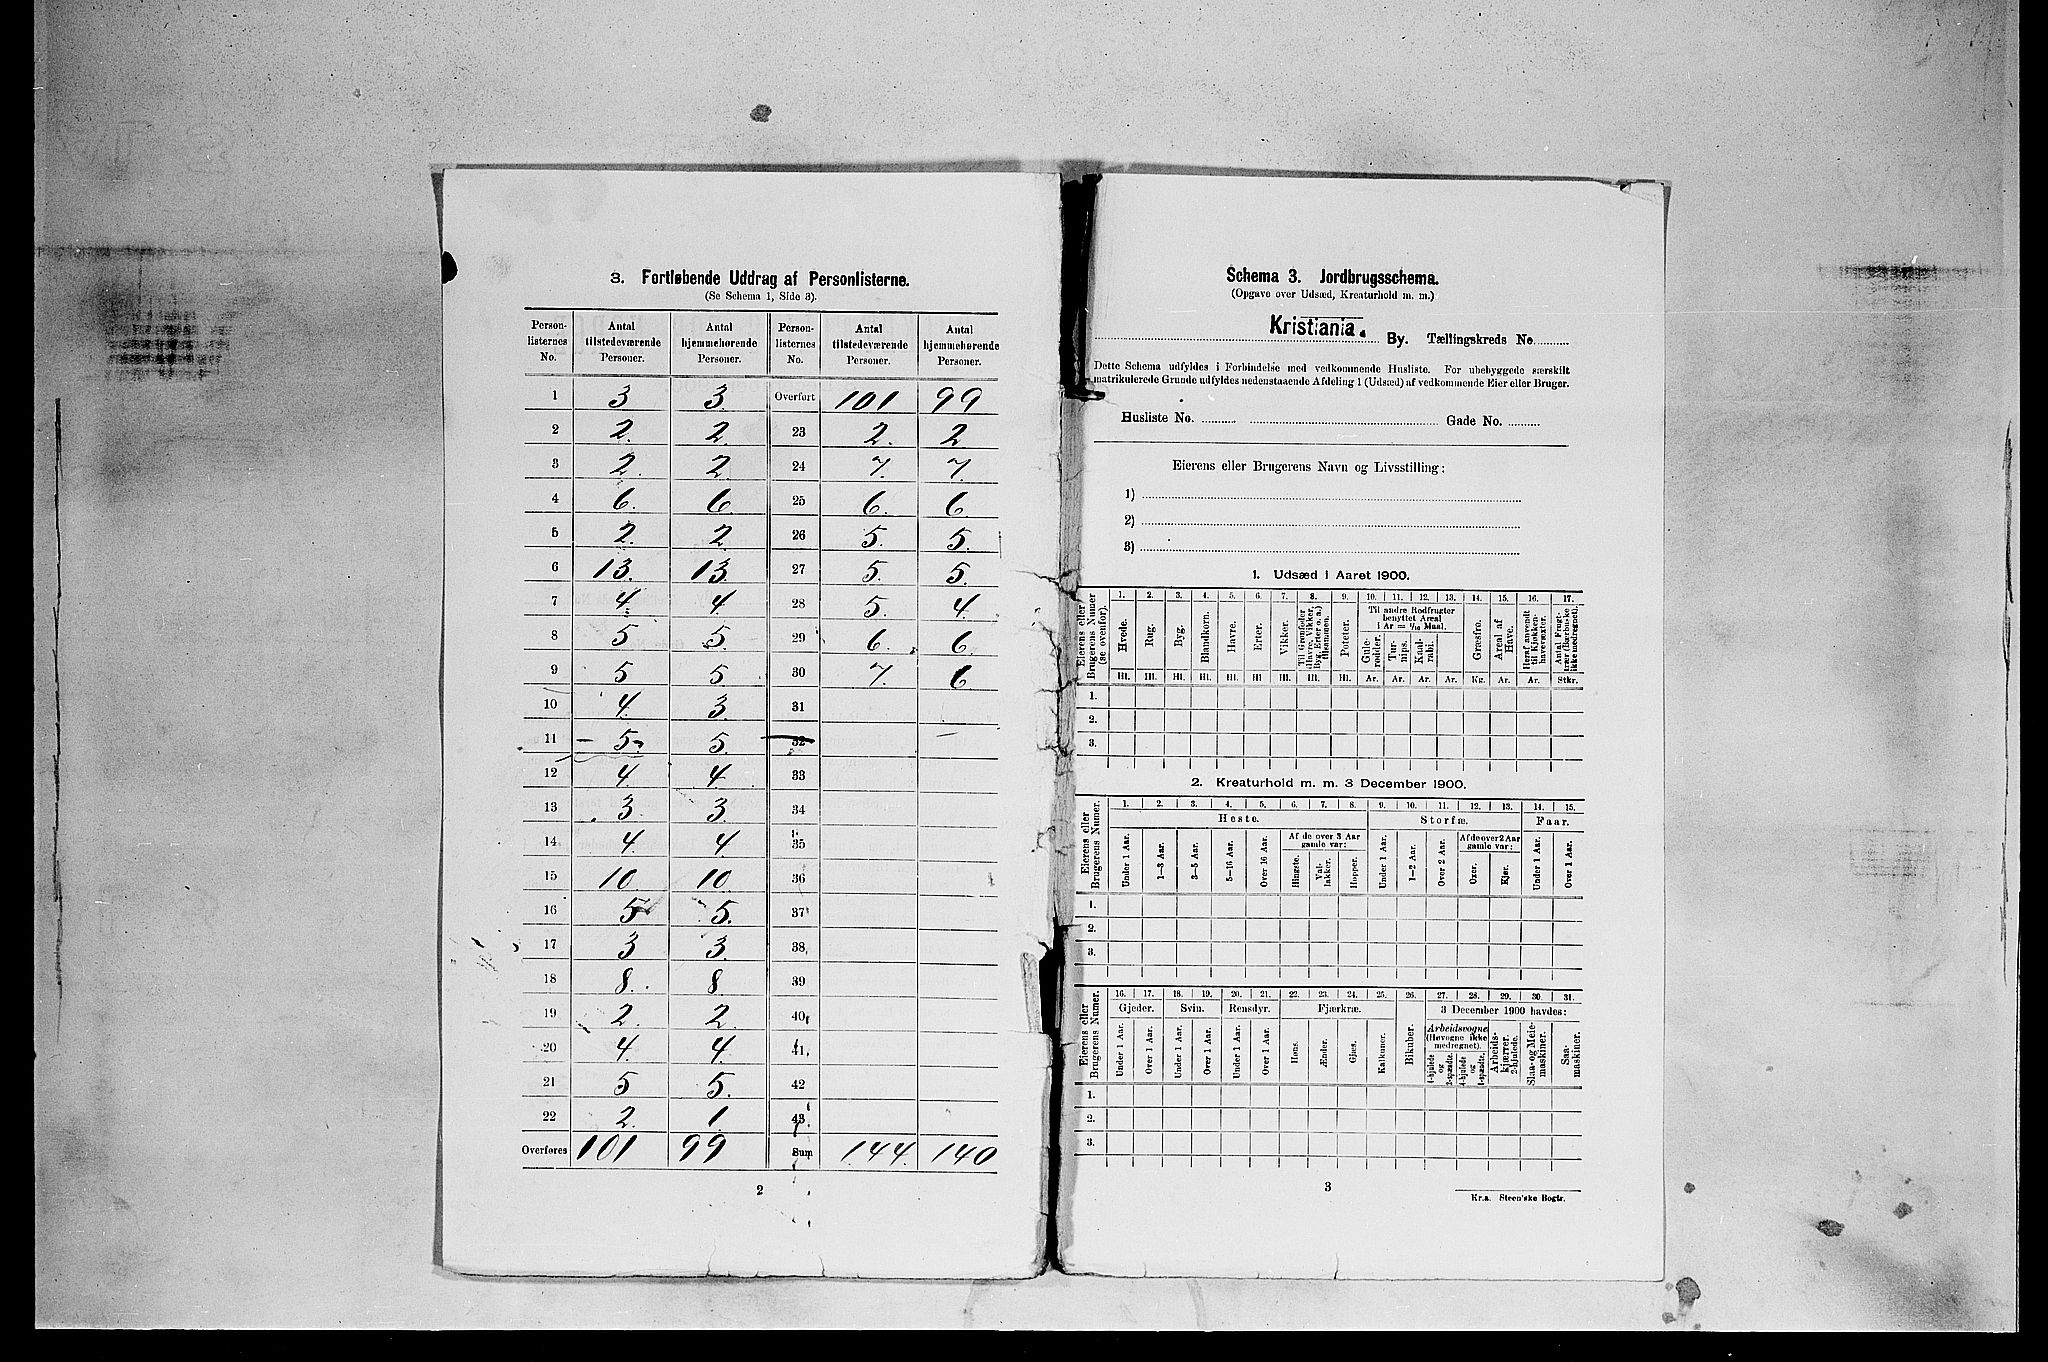 3. Fortløbende Uddrag af Personlisterne.
(Se Schema 1, Side 3).
Person-listernes No. | Antal tilstedeværende Personer. | Antal hjemmehørende Personer. | Person-listernes No. | Antal tilstedeværende Personer. | Antal hjemmehørende Personer.
1 | 3 | 3. | Overført | 101 | 99
2 | 2. | 2 | 23 | 2. | 2
3 | 2. | 2 | 24 | 7. | 7.
4 | 6. | 6. | 25 | 6. | 6.
5 | 2. | 2. | 26 | 5. | 5.
6 | 13. | 13. | 27 | 5. | 5.
7 | 4. | 4. | 28 | 5. | 4.
8 | 5 | 5. | 29 | 6. | 6.
9 | 5 | 5. | 30 | 7. | 6
10 | 4. | 3. | 31
11 | 5. | 5. | 32
12 | 4. | 4. | 33
13 | 3. | 3. | 34
14 | 4. | 4. | 35
15 | 10. | 10. | 36
16 | 5 | 5. | 37
17 | 3 | 3. | 38
18 | 8. | 8. | 39
19 | 2. | 2. | 40
20 | 4. | 4. | 41
21 | 5 | 5. | 42
22 | 2. | 1. | 43
Overføres | 101 | 99 | Sum | 144. | 140
2
Schema 3. Jordbrugsschema.
(Opgave over Udsæd, Kreaturhold m. m.)
Kristiania. By. Tællingskreds No
Dette Schema udfyldes i Forbindelse med vedkommende Husliste. For ubebyggede særskilt
matrikulerede Grunde udfyldes nedenstaaende Afdeling 1 (Udsæd) af vedkommende Eier eller Bruger.
Husliste No. Gade No.
Eierens eller Brugerens Navn og Livsstilling:
1)
2)
3)
1. Udsæd i Aaret 1900.
Eierens eller Brugerens Numer (se ovenfor).
1. 2. 3. 4. 5. 6. 7. 8. 9. 10. 11. 12. 13. 14. 15. 16. 17.
Til andre Rodfrugter benyttet Areal i Ar = 1/10 Maal.
Hvede. Rug. Byg. Blandkorn. Havre. Erter. Vikker. Til Grønfoder (Havre, Vikker, Byg, Erter o. a.) tilsammen. Poteter. Gule-rødder. Tur-nips. Kaal-rabi. Græsfrø. Areal af Have. Heraf anvendt til Kjøkken-havevæxter. Antal Frugt-trær (Bærbuske ikke medregnet).
Hl. Hl. Hl. Hl. Hl. Hl. Hl. Hl. Hl. Ar. Ar. Ar. Ar. Kg. Ar. Ar. Stkr.
1.
2.
3.
2. Kreaturhold m. m. 3 December 1900.
Eierens eller Brugerens Numer.
1. 2. 3. 4. 5. 6. 7. 8. 9. 10. 11. 12. 13. 14. 15.
Heste. Storfæ. Faar.
Af de over 3 Aar gamle var: Af de over 2 Aar gamle var:
Under 1 Aar. 1—3 Aar. 3—5 Aar. 5—16 Aar. Over 16 Aar. Hingste. Val-lakker. Hopper. Under 1 Aar. 1—2 Aar. Over 2 Aar. Oxer. Kjør. Under 1 Aar. Over 1 Aar.
1.
2.
3.
Eierens eller Brugerens Numer.
16. 17. 18. 19. 20. 21. 22. 23. 24. 25. 26. 27. 28. 29. 30. 31.
Gjeder. Svin. Rensdyr. Fjærkræ. Bikuber. 3 December 1900 havdes:
Arbeidsvogne (Høvogne ikke medregnet).
Under 1 Aar. Over 1 Aar. Under 1 Aar. Over 1 Aar. Under 1 Aar. Over 1 Aar. Høns. Ænder. Gjæs. Kalkuner. 4-hjulede og 2-spændte. 4-hjulede og 1-spændte. Arbeids-kjærrer. 2-hjulede. Slaa- og Meie-maskiner. Saa-maskiner.
1.
2.
3.
3
Kr.a. Steen'ske Bogtr.